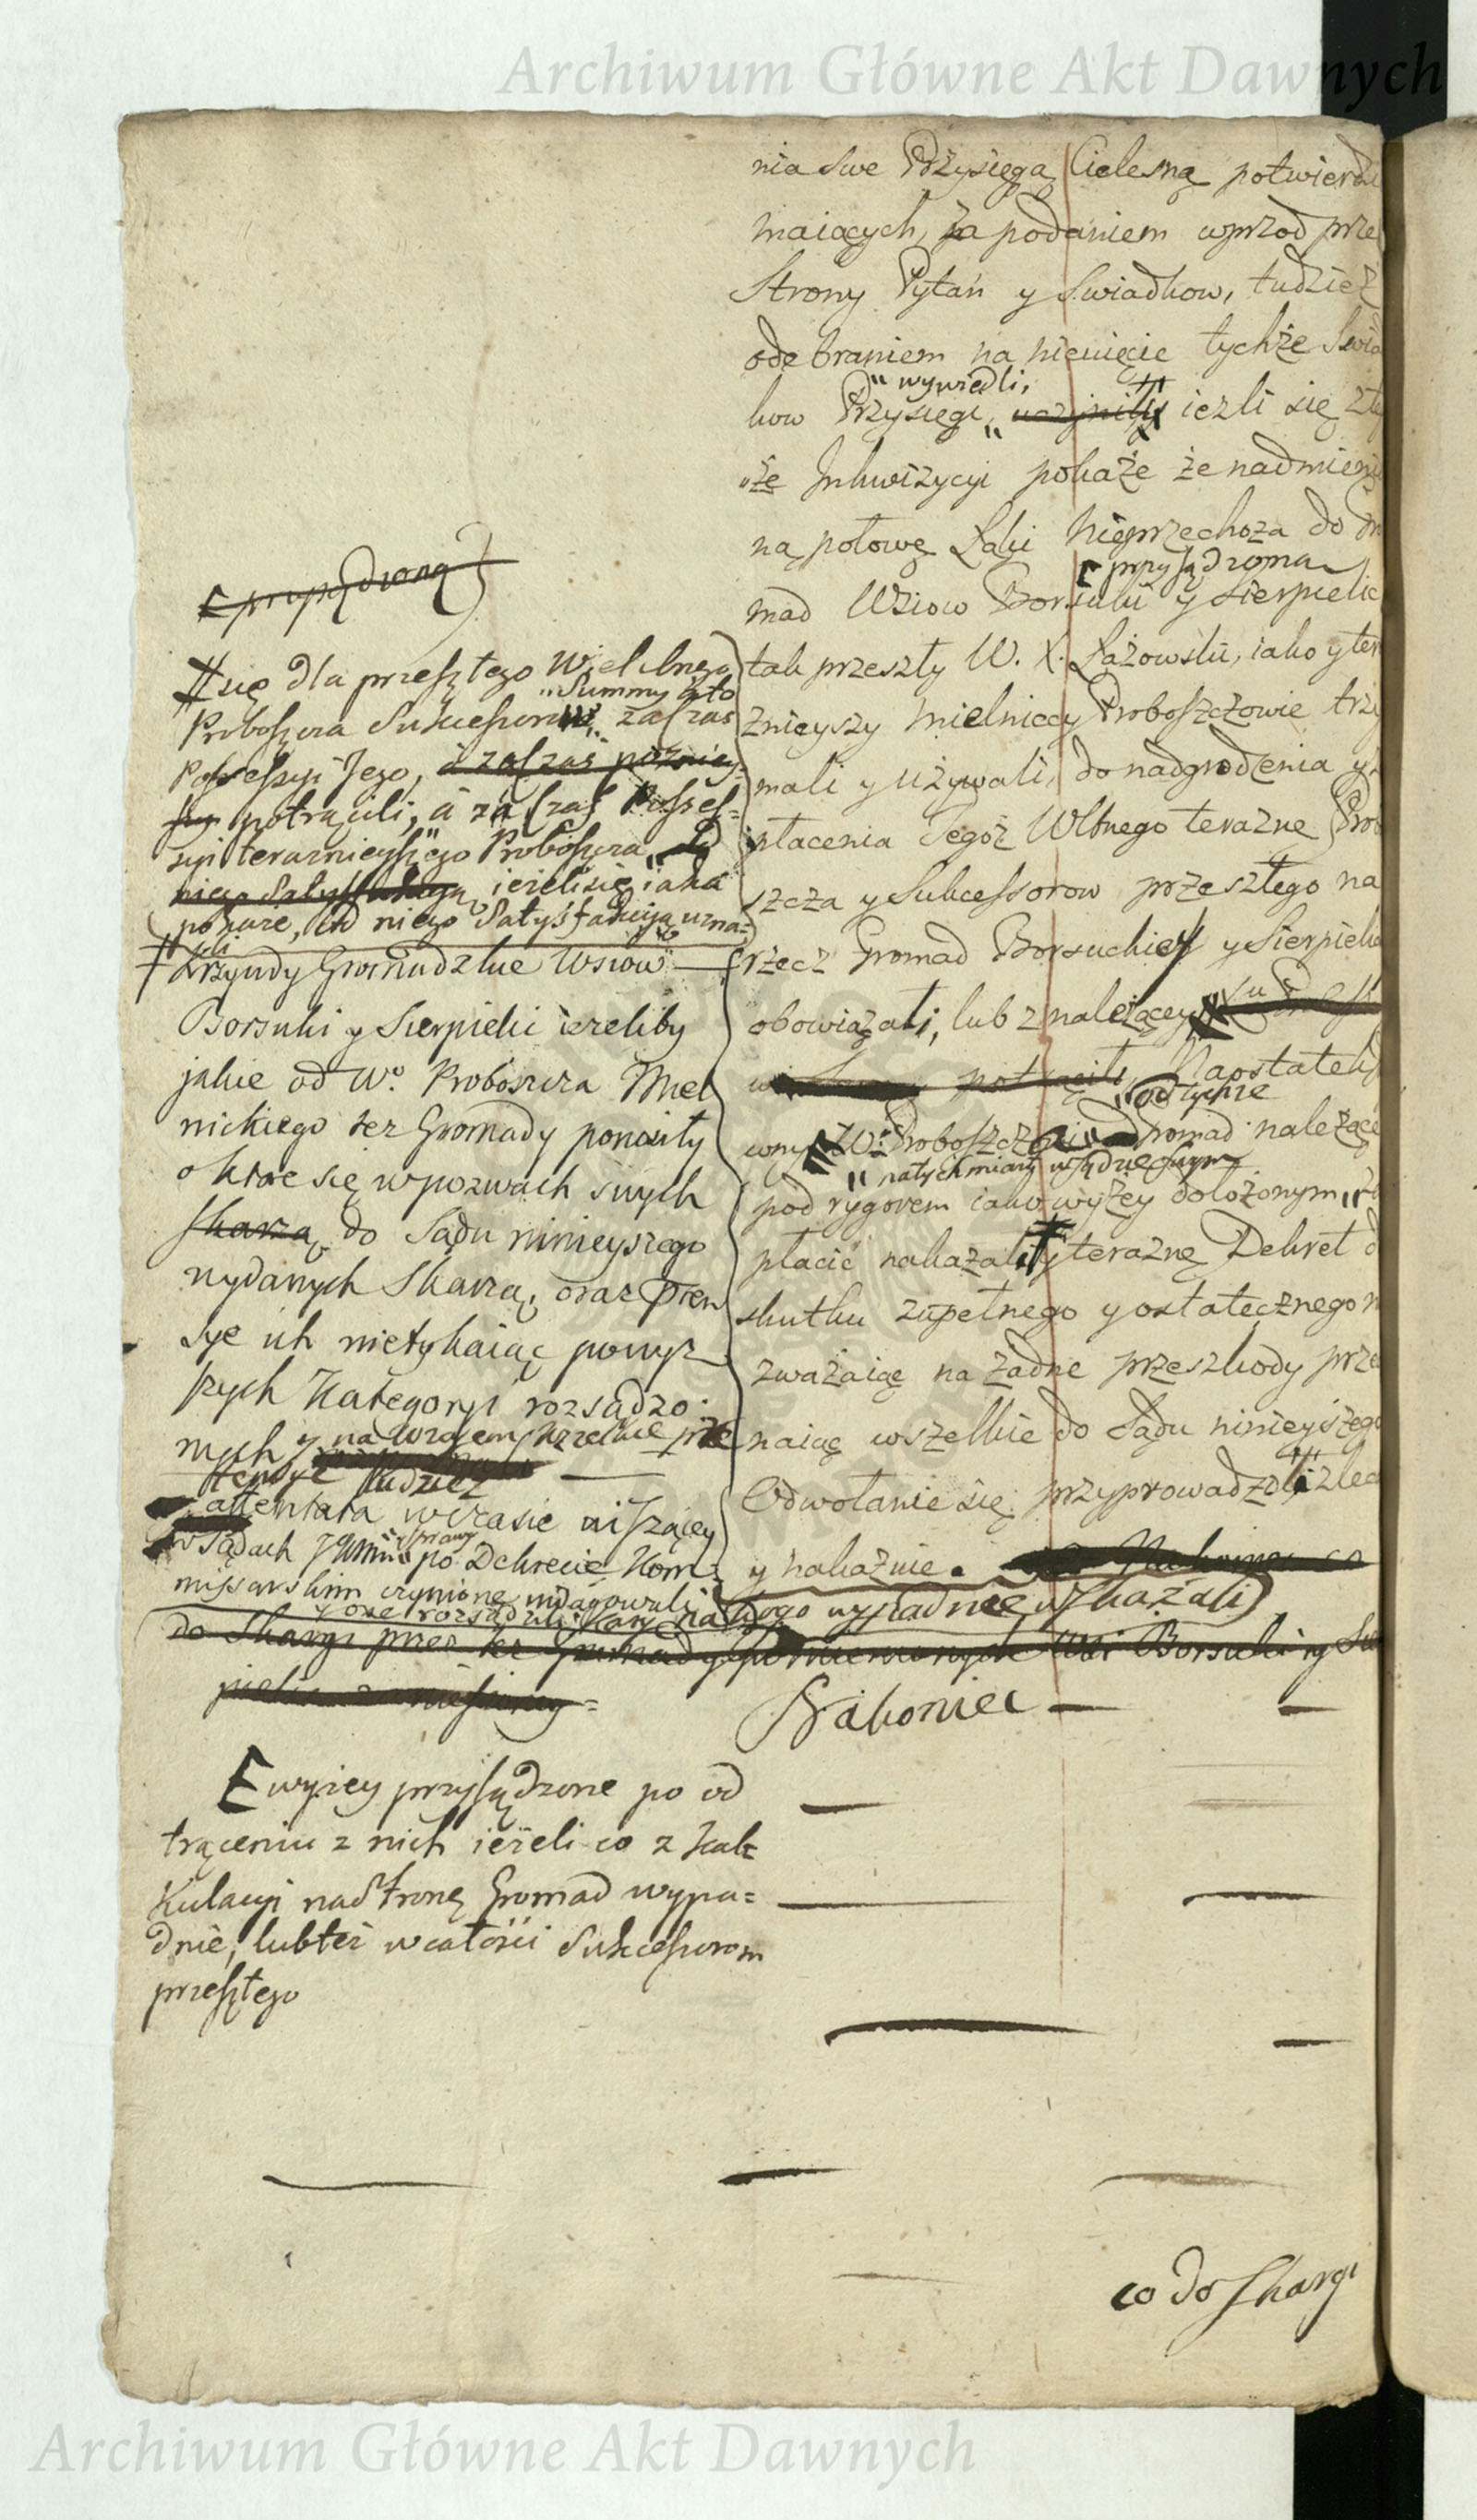 Archiwum Główne Akt Dawnych
nia Swe Przysięgą Cielesną potwierdz
maiących, za podaniem wprzod prze
Strony Pytań y Swiadkow, tudzież
odebraniem na niewięcie tychże Swia
"wywiedli,
kow Przysięgi, uczynili ieżli się z ty
"że Inkwizycyi pokaże że nadmieni
ną połowę Łąki nieprzechoza do
przysądzoną
mad Wsiow Borsuki y Sierpielic
tak przeszły W. X. Łazowski, iako y ter
znieyszy Mielniccy Proboszczowie trzy
mali y używali, do nadgrodzenia y
płacenia Tegoż Wltnego terazne Prob
szcza y Sukcessorow przeszłego na
rzecz Gromad Borsuckiey y Sierpielic
obowiązali, lub z należącey
potrącili, Naostatek
od tychże
Wo Proboszczowi Gromad należące
"natychmiast w Sądzie Swym
pod rygorem iako wyżey dołożonym"
płacić nakazali y terazne Dekret d
skutku zupełnego y ostatecznego n
zważaiąc na żadne przeszkody prze
naiąc wszelkie do Sądu ninieyszego
Odwołanie się, przyprowadzili zlec
y nakaźnie.
przysądzoną
się dla przeszłego Wielebnego
"Summy iako
Proboszcza Sukcessorow, za czas
Possessyi Jego, a za czas poźniey
szy potrącili, a za czas Posses=
syi terarnieyszego Proboszcza, od
niego Satysfakcyą, ieżeli się iaka
pokaże, od niego Satysfakcyią uzna=
li
Krzywdy Gromadzkie Wsiow
Borsuki y Sierpielic ieżeliby
jakie od Wo. Proboszcza Miel
nickiego też Gromady ponosiły
o ktore się w pozwach swych
skarzą, do Sądu ninieyszego
wydanych Skarzą, oraz Preten
sye ich nietykaiąc powyż
szych Kategoryi rozsądzo
nych y na wzajem wszelkie pre
tensye tudzież
attentata w czasie wiszącey
sprawy
w Sądach Ziemi po Dekrecie Kom=
missarskim czynione indagowali
y one rozsądzili Kary na kogo wypadnie wskazali
do Skargi przez też Gromady pomienionych Wsi Borsuki y Sie
Nakoniec
wyżey przysądzone po od
trąceniu z nich ieżeli co z Kal=
kulacyi na Stronę Gromad wypa=
dnie, lubteż w całości Sukcessorom
przeszłego
co do Skargi
Archiwum Główne Akt Dawnych